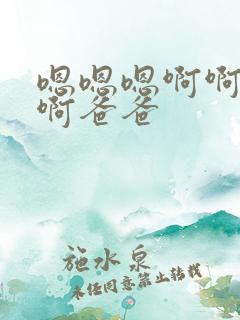 嗯嗯嗯啊啊
啊爸爸
施水泉
未经同意禁止转载